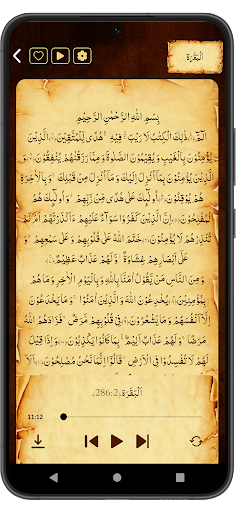 اَلْبَقَرَة
بِسْمِ اللهِ الرَّحْمٰنِ الرَّحِيْمِ
الٓمّٓ ذٰلِكَ الْكِتٰبُ لَا رَيْبَ فِيْهِ هُدًى لِّلْمُتَّقِيْنَ الَّذِيْنَ
يُؤْمِنُوْنَ بِالْغَيْبِ وَيُقِيْمُوْنَ الصَّلٰوةَ وَمِمَّا رَزَقْنٰهُمْ يُنْفِقُوْنَ وَالَّذِيْنَ
يُؤْمِنُوْنَ بِمَا اُنْزِلَ اِلَيْكَ وَمَا اُنْزِلَ مِنْ قَبْلِكَ وَبِالْاٰخِرَةِ
هُمْ يُوْقِنُوْنَ اُولٰٓئِكَ عَلٰى هُدًى مِّنْ رَّبِّهِمْ وَاُولٰٓئِكَ هُمُ
الْمُفْلِحُوْنَ اِنَّ الَّذِيْنَ كَفَرُوْا سَوَآءٌ عَلَيْهِمْ ءَاَنْذَرْتَهُمْ اَمْ لَمْ
تُنْذِرْهُمْ لَا يُؤْمِنُوْنَ خَتَمَ اللهُ عَلٰى قُلُوْبِهِمْ وَعَلٰى سَمْعِهِمْ وَ
عَلٰى اَبْصَارِهِمْ غِشَاوَةٌ وَّلَهُمْ عَذَابٌ عَظِيْمٌ
وَمِنَ النَّاسِ مَنْ يَّقُوْلُ اٰمَنَّا بِاللهِ وَبِالْيَوْمِ الْاٰخِرِ وَمَا هُمْ
بِمُؤْمِنِيْنَ يُخٰدِعُوْنَ اللهَ وَالَّذِيْنَ اٰمَنُوْا وَمَا يَخْدَعُوْنَ
اِلَّآ اَنْفُسَهُمْ وَمَا يَشْعُرُوْنَ فِيْ قُلُوْبِهِمْ مَّرَضٌ فَزَادَهُمُ اللهُ
مَرَضًا وَلَهُمْ عَذَابٌ اَلِيْمٌ بِمَا كَانُوْا يَكْذِبُوْنَ وَاِذَا قِيْلَ
لَهُمْ لَا تُفْسِدُوْا فِي الْاَرْضِ قَالُوْٓا اِنَّمَا نَحْنُ مُصْلِحُوْنَ اَلَآ
اَلْبَقَرَة,286:2
11:12